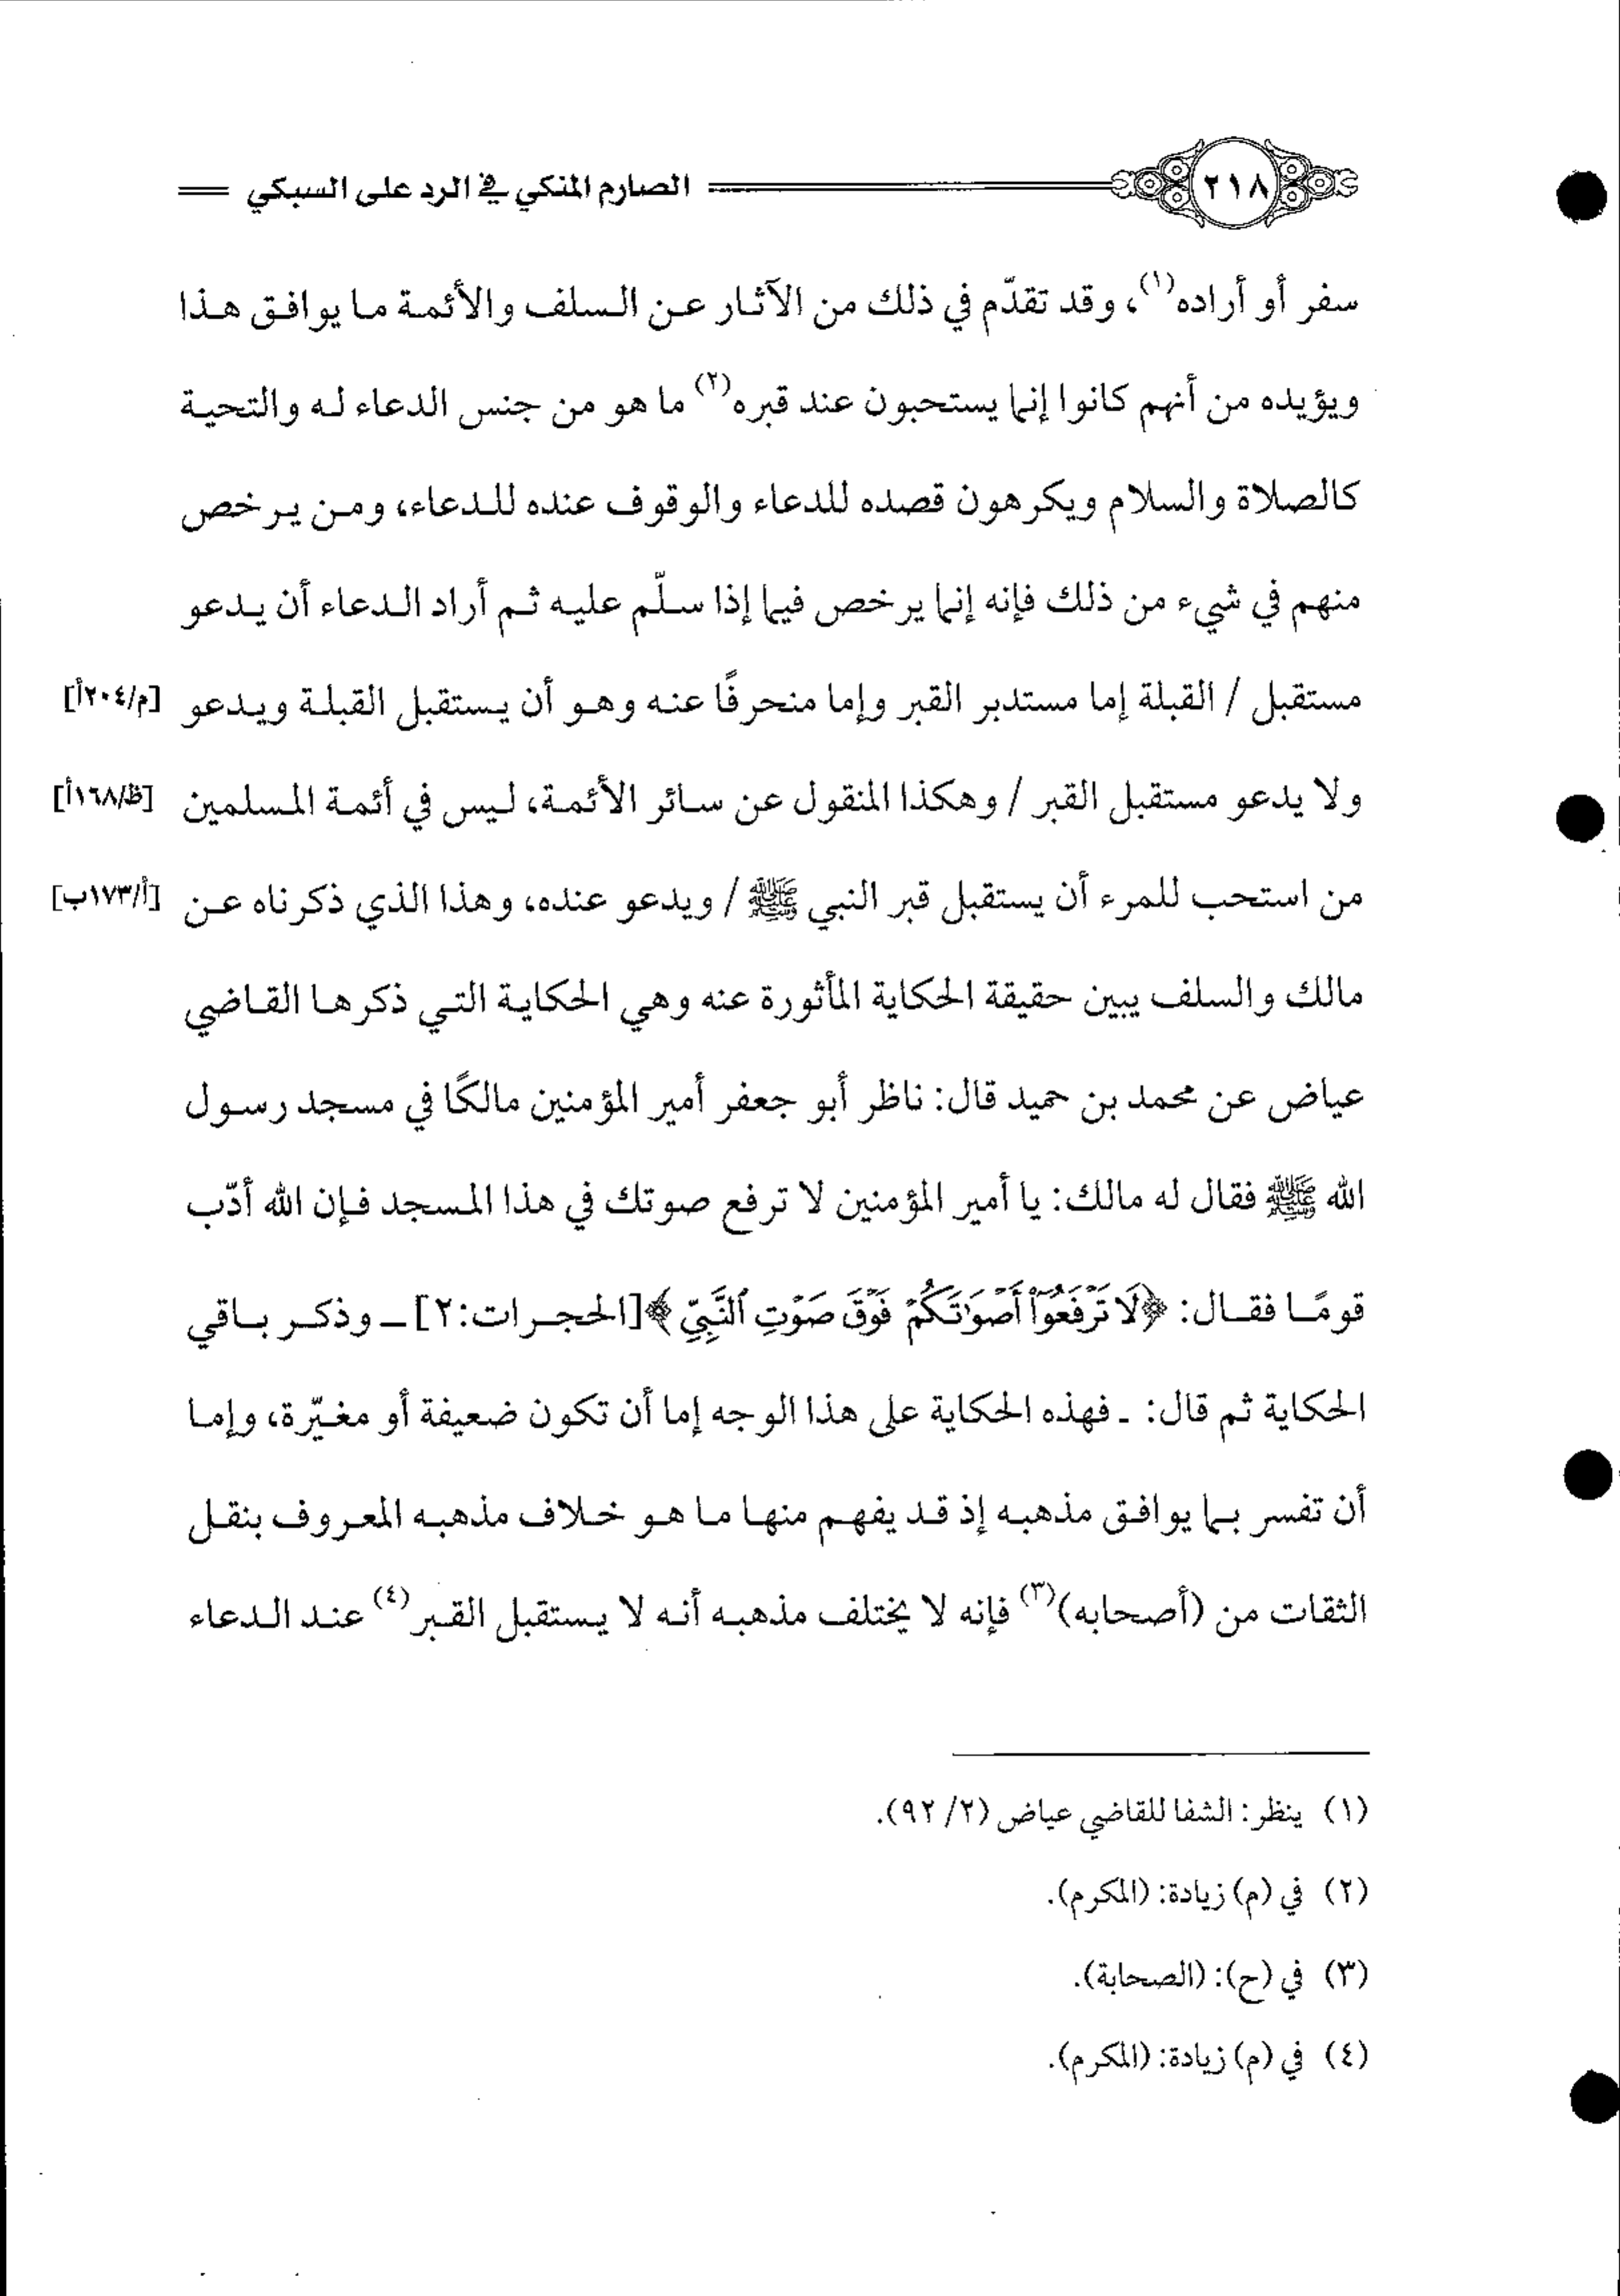 ٢١٨ الصارم المنكي في الرد على السبكي
سفر أو أراده(١)، وقد تقدّم في ذلك من الآثار عن السلف والأئمة ما يوافق هذا
ويؤيده من أنهم كانوا إنما يستحبون عند قبره(٢) ما هو من جنس الدعاء له والتحية
كالصلاة والسلام ويكرهون قصده للدعاء والوقوف عنده للدعاء، ومن يرخص
منهم في شيء من ذلك فإنه إنما يرخص فيما إذا سلّم عليه ثم أراد الدعاء أن يدعو
مستقبل / القبلة إما مستدبر القبر وإما منحرفًا عنه وهو أن يستقبل القبلة ويدعو [م/٢٠٤أ]
ولا يدعو مستقبل القبر / وهكذا المنقول عن سائر الأئمة، ليس في أئمة المسلمين [ظ/١٦٨أ]
من استحب للمرء أن يستقبل قبر النبي ﷺ / ويدعو عنده، وهذا الذي ذكرناه عن [أ/١٧٣ب]
مالك والسلف يبين حقيقة الحكاية المأثورة عنه وهي الحكاية التي ذكرها القاضي
عياض عن محمد بن حميد قال: ناظر أبو جعفر أمير المؤمنين مالكًا في مسجد رسول
الله ﷺ فقال له مالك: يا أمير المؤمنين لا ترفع صوتك في هذا المسجد فإن الله أدّب
قومًا فقال: ﴿لَا تَرْفَعُوٓا۟ أَصْوَٰتَكُمْ فَوْقَ صَوْتِ ٱلنَّبِيِّ﴾ [الحجرات:٢] ـ وذكر باقي
الحكاية ثم قال: ـ فهذه الحكاية على هذا الوجه إما أن تكون ضعيفة أو مغيّرة، وإما
أن تفسر بما يوافق مذهبه إذ قد يفهم منها ما هو خلاف مذهبه المعروف بنقل
الثقات من (أصحابه)(٣) فإنه لا يختلف مذهبه أنه لا يستقبل القبر(٤) عند الدعاء
(١) ينظر: الشفا للقاضي عياض (٢/ ٩٢).
(٢) في (م) زيادة: (المكرم).
(٣) في (ح): (الصحابة).
(٤) في (م) زيادة: (المكرم).